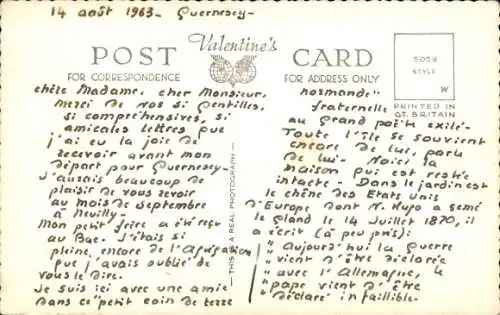 14 août 1963 - Guernesey -
POST Valentine's CARD
FOR CORRESPONDENCE
FOR ADDRESS ONLY
5059
STYLE
W
PRINTED IN
GT. BRITAIN
THIS IS A REAL PHOTOGRAPH
chère Madame, cher Monsieur,
Merci de vos si gentilles,
si compréhensives, si
amicales lettres que
j'ai eu la joie de
recevoir avant mon
départ pour Guernesey -
J'aurais beaucoup de
plaisir de vous revoir
au mois de septembre
à Neuilly -
Mon petit frère a été reçu
au Bac. J'étais si
pleine encore de l'
que j'avais oublié de
vous le dire.
Je suis ici avec une amie
dans ce "petit coin de terre
normande"
fraternelle
au grand poète exilé -
Toute l'île se souvient
encore de lui, parle
de lui - Voici la
maison qui est restée
intacte - Dans le jardin est
le chêne des Etats Unis
d'Europe dont V. Hugo a semé
le gland le 14 Juillet 1870, il
a écrit (à peu près) :
"Aujourd'hui la guerre
"vient d'être déclarée
"avec l'Allemagne, le
"pape vient d'être
"déclaré infaillible.